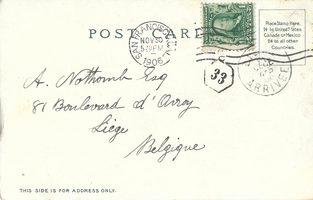 POST CARD
SAN FRANCISCO, CAL.
NOV 30
5-PM
1906
Place Stamp Here.
1¢ to United States
Canada or Mexico
2¢ to all other
Countries.
33
ARRIVÉE
A. Nothomb Esq
81 Boulevard d'Avroy
Liège
Belgique
THIS SIDE IS FOR ADDRESS ONLY.